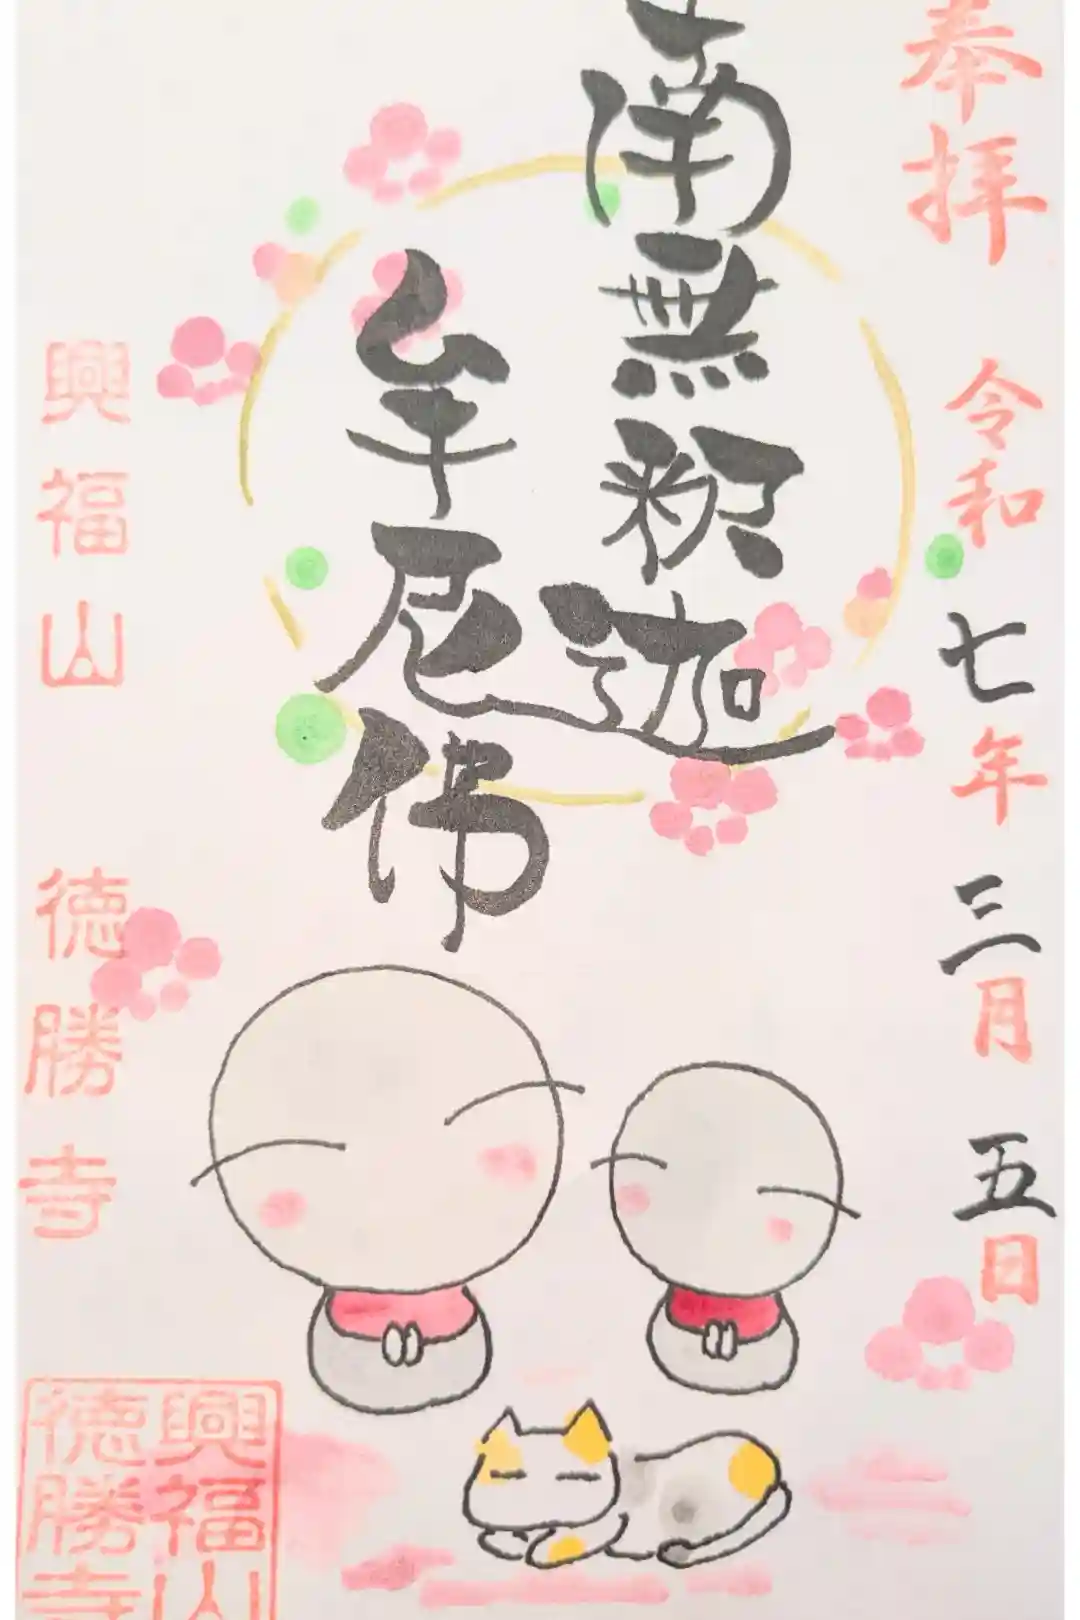 奉拝
令和七年三月五日
南無釈迦
牟尼佛
興福山
徳勝寺
興福山
徳勝寺